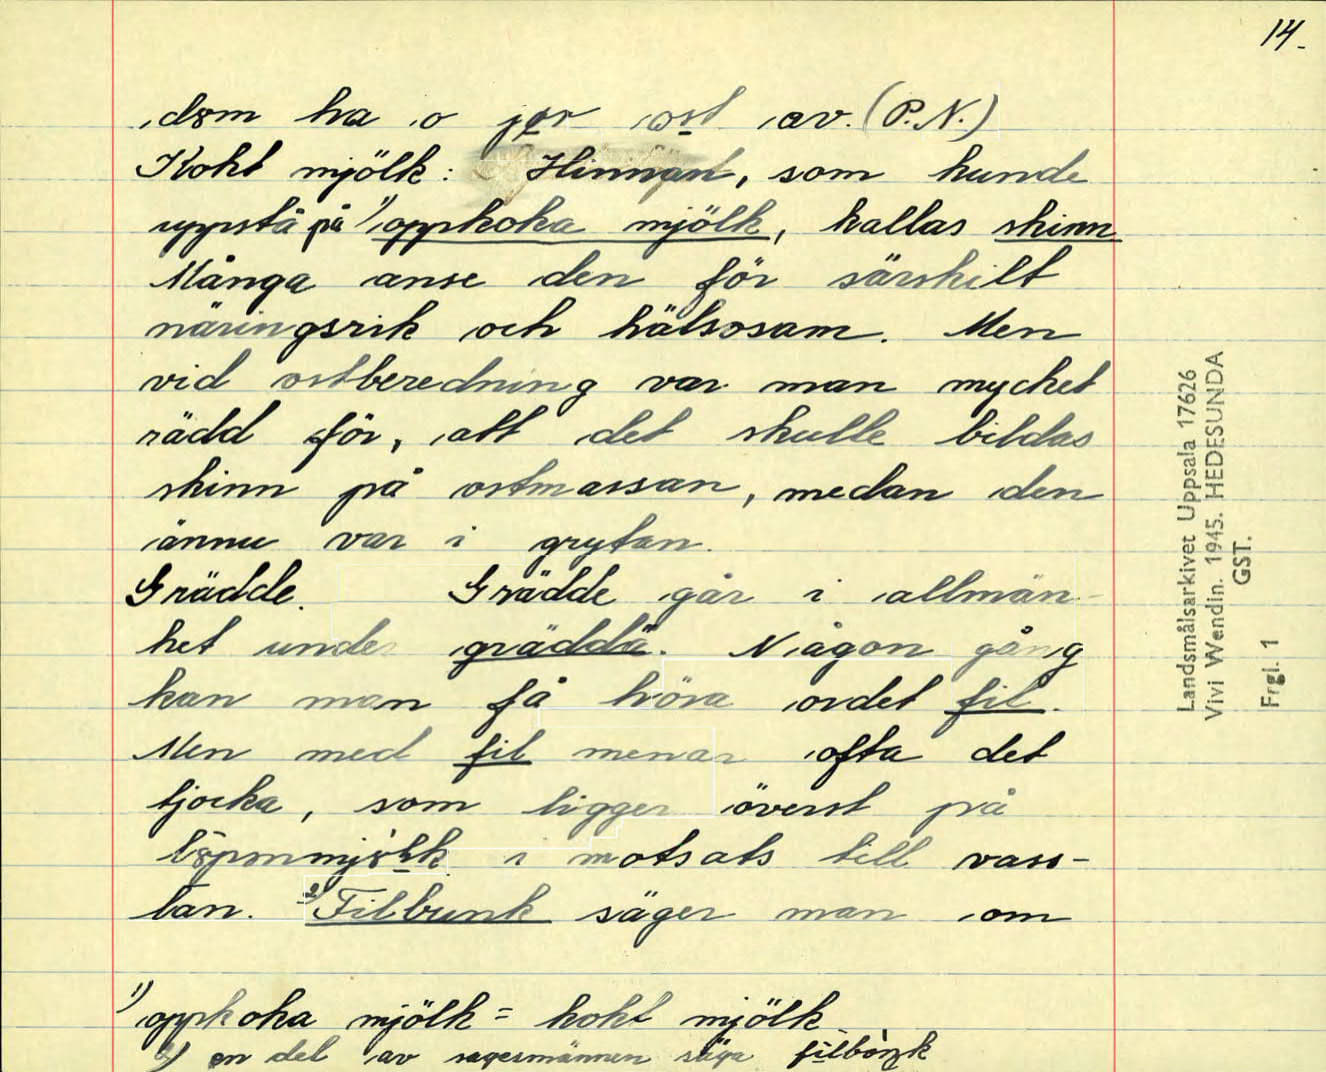 14.
dom ha o jör ost av. (P.N.)
Kokt mjölk: Hinnan, som kunde
uppstå på 1) oppkoka mjölk, kallas skinn
Många anse den för särskilt
näringsrik och hälsosam. Men
vid ostberedning var man mycket
rädd för, att det skulle bildas
skinn på ostmassan, medan den
ännu var i grytan.
Grädde. Grädde går i allmän-
het under gräddä. Någon gång
kan man få höra ordet fil.
Men med fil menar ofta det
tjocka, som ligger överst på
i motsats till vass-
lan. 2) Filbunk säger man om
1) oppkoka mjölk = kokt mjölk
2) en del av sagesmännen säga
Landsmålsarkivet Uppsala 17626
Vivi Wendin. 1945. HEDESUNDA
GST.
Frgl. 1